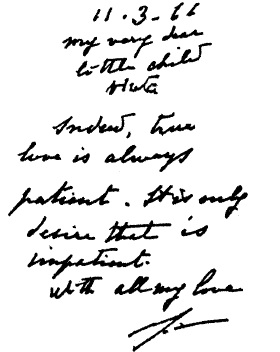 11.3.61
my very dear
little child
Huta
Indeed, true
love is always
patient. It is only
desire that is
impatient.
With all my love